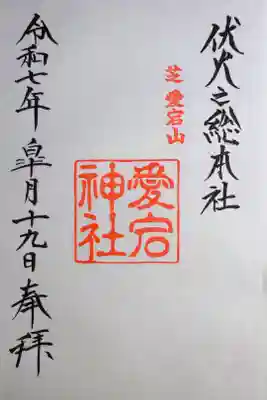 伏火之総本社
芝愛宕山
愛宕
神社
令和七年皐月十九日奉拝